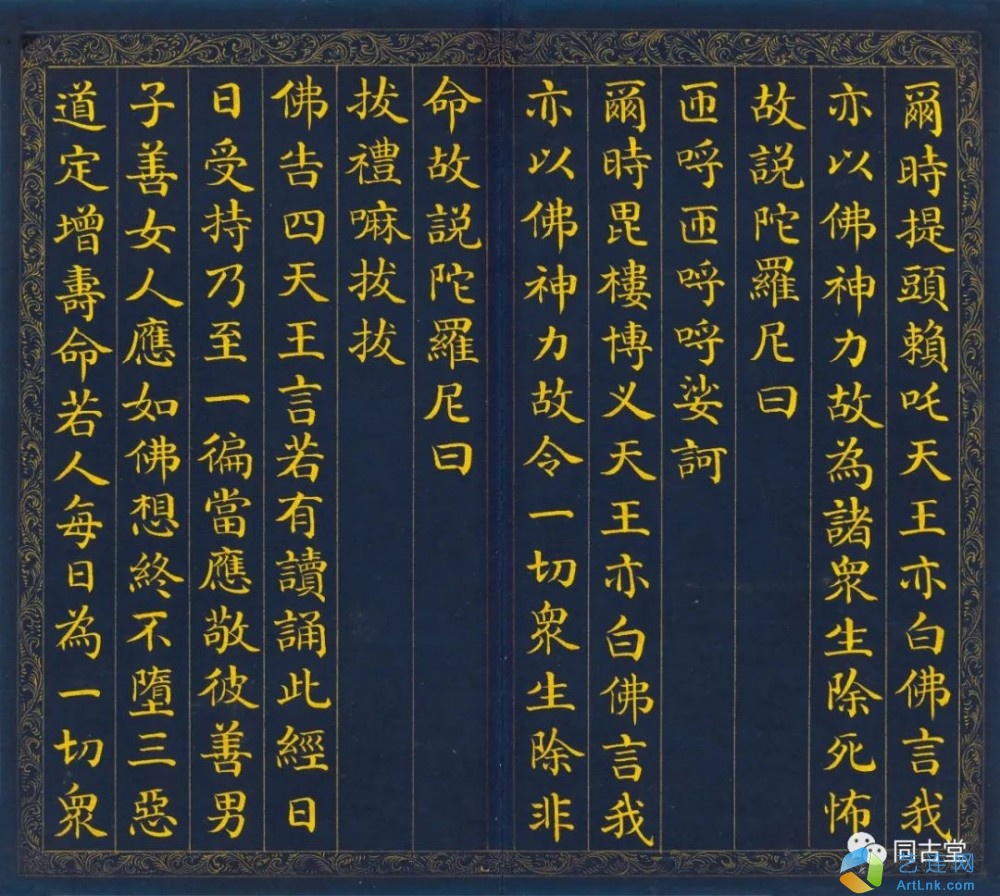 爾時提頭賴吒天王亦白佛言我
亦以佛神力故為諸衆生除死怖
故説陀羅尼曰
匝呼匝呼呼娑訶
爾時毘樓博义天王亦白佛言我
亦以佛神力故令一切衆生除非
命故説陀羅尼曰
拔禮嘛拔拔
佛告四天王言若有讀誦此經日
日受持乃至一徧當應敬彼善男
子善女人應如佛想終不墮三惡
道定增壽命若人每日為一切衆
同古堂
艺连网
ArtLnk.com